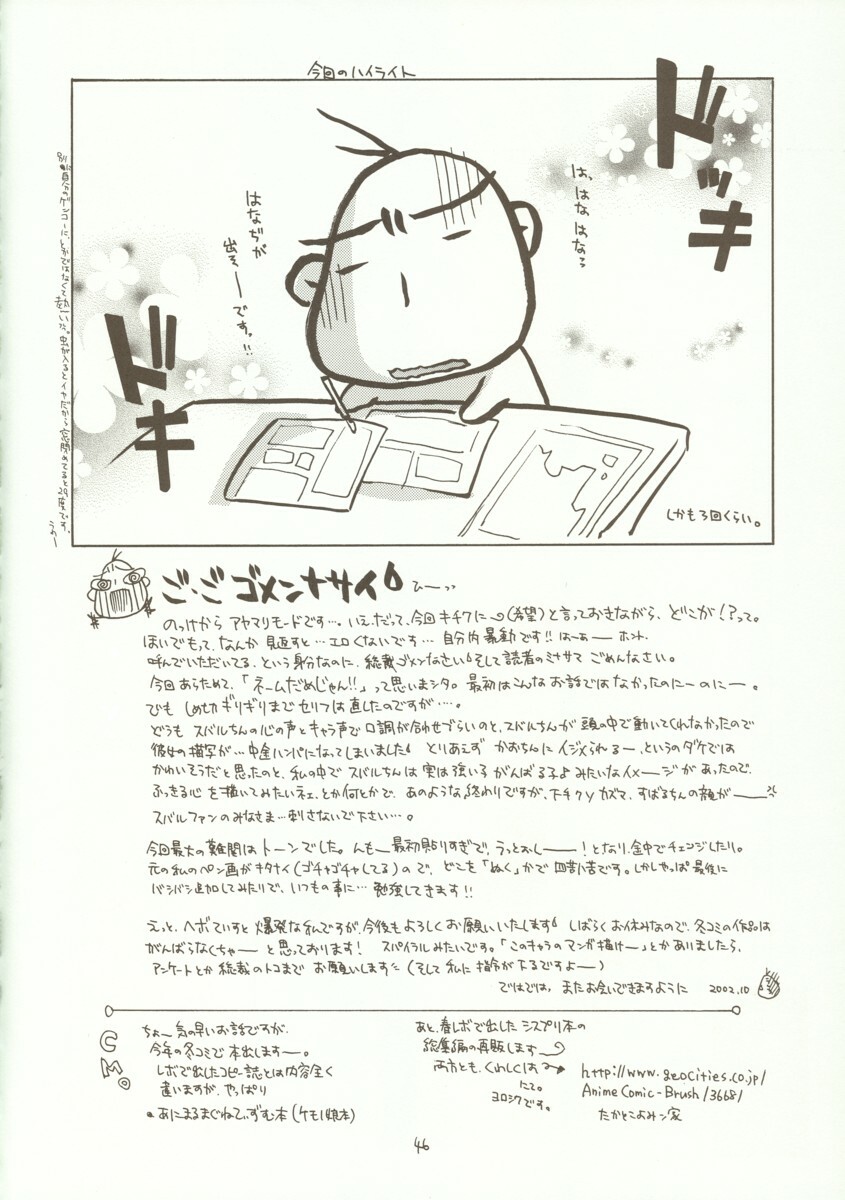 今回のハイライト
ドッキ
ドキ
はっ、はなはなっ
はなぢが
出そーですッ!!
しかも3回くらい。
別に自分のゲンコーに、とかではなくて熱いだ。虫が入るとイヤだから窓閉めてると29度です。うーー
ご・ごゴメンナサイ ひーっっ
のっけから アヤマリモードです…。いえ、だって、今回 キチクに(希望)と言っておきながら、どこが!?って。
ほいでもって、なんか 見返すと…エロくないです… 自分内暴動です!! はーぁーー ホント、
呼んでいただいてる、という身分なのに、総裁ゴメンなさい そして読者のミナサマ ごめんなさい。
今回あらためて、「ネームだめじゃん!!」って思いまシタ。最初はこんなお話ではなかったのにーのにー。
でも しめ切ギリギリまでセリフは直したのですが…。
どうも スバルちんの心の声とキャラ声で口調が合わせづらいのと、スバルちんが頭の中で動いてくれなかったので
彼女の描写が…中途ハンパになってしまいました とりあえず かおちんに イジメられるー、というのダケでは
かわいそうだと思ったのと、私の中で スバルちんは実は強い子 がんばる子♪ みたいなイメージがあったので、
ふっきる心を描いてみたいネェ、とか何とかで、あのような終わりですが、下チクyカズマ、すばるちんの顔がーー
スバルファンのみなさま…刺さないで下さい…。
今回最大の難関はトーンでした。んもー最初貼りすぎで、うっとおしーー!となり、途中でチェンジしたり。
元の私のペン画がキタナイ(ゴチャゴチャしてる)ので、どこを「ぬく」かで四苦八苦です。しかしやっぱ最後に
バシバシ追加してみたりで、いつもの事に…勉強してきます!!
えっと、ヘボていすと爆発な私ですが、今後もよろしくお願いいたします しばらくお休みなので、冬コミの作品は
がんばらなくちゃーと思っております! スパイラルみたいです。「このキャラのマンガ描けー」とかありましたら、
アンケートとか総裁のトコまで お願いします (そして私に指令が下るですよー)
ではでは、またお会いできますように 2002.10
CM。
ちょー気の早いお話ですが、
今年の冬コミで本出しますー。
レボで出したコピー誌とは内容全く
違いますが、やっぱり
●あにまるまぐねてぃずむ本(ケモノ娘本)
あと、春レボで出した シスプリ本の
総集編の再販します
両方とも、くわしくは→
にて。
ヨロシクです。
http://www.geocities.co.jp/
AnimeComic-Brush/3668/
たかとこよみン家
46